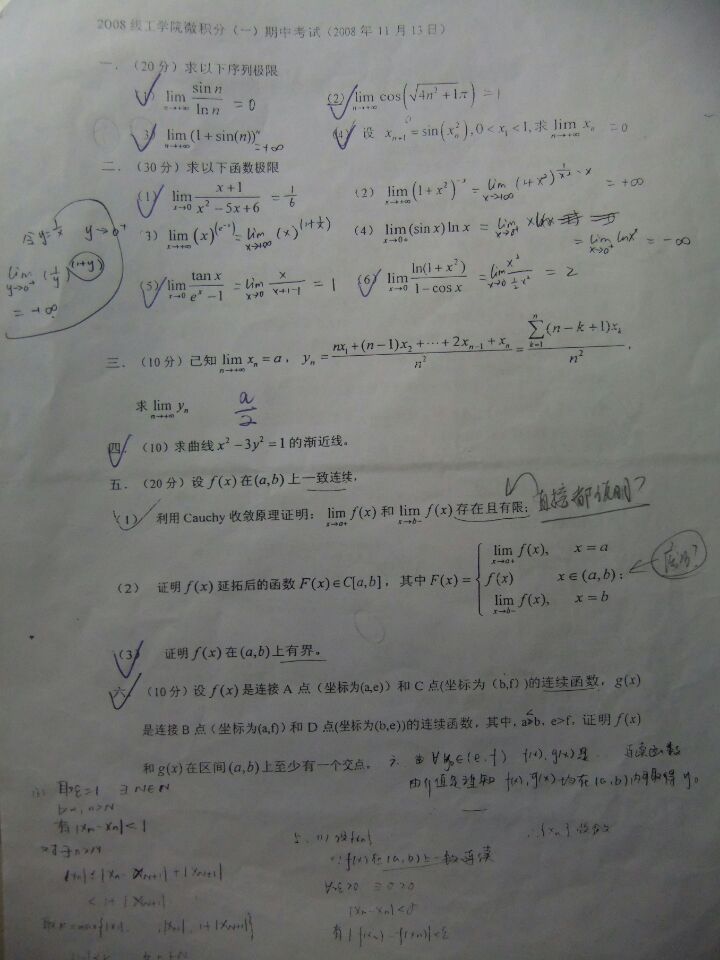 2008 级工学院微积分（一）期中考试（2008 年 11 月 13 日）
一．（20 分）求以下序列极限
(1) lim_{n→+∞} sin n / ln n = 0 (2) lim_{n→+∞} cos(√(4n²+1)π) = 1
(3) lim_{n→+∞} (1+sin(n))ⁿ = +∞ (4) 设 x_{n+1} = sin(x_n²), 0 < x₁ < 1, 求 lim_{n→+∞} x_n = 0
二．（30 分）求以下函数极限
(1) lim_{x→0} (x+1)/(x²−5x+6) = 1/6 (2) lim_{x→+∞} (1+x²)^{−x} = lim_{x→+∞} (1+x²)^{1/x²·−x} = +∞
令y=1/x y→0⁺
(3) lim_{x→+∞} (x)^{(e^{-x})} = lim_{x→+∞} (x)^{(1+1/x)} (4) lim_{x→0+} (sin x) ln x = lim_{x→0⁺} x ln x
= lim_{x→0⁺} ln xˣ = −∞
lim_{y→0⁺} (1/y)^{(1+y)}
= +∞
(5) lim_{x→0} tan x/(eˣ−1) = lim_{x→0} x/(x+1−1) = 1 (6) lim_{x→0} ln(1+x²)/(1−cos x) = lim_{x→0} x²/(½x²) = 2
三．（10 分）已知 lim_{n→+∞} x_n = a， y_n = (nx₁+(n−1)x₂+⋯+2x_{n−1}+x_n)/n² = Σ_{k=1}^{n}(n−k+1)x_k / n²，
求 lim_{n→+∞} y_n a/2
四．（10）求曲线 x²−3y²=1 的渐近线。
五．（20 分）设 f(x) 在 (a,b) 上一致连续，
(1) 利用 Cauchy 收敛原理证明： lim_{x→a+} f(x) 和 lim_{x→b−} f(x) 存在且有限； 直接都说明？
(2) 证明 f(x) 延拓后的函数 F(x)∈C[a,b]，其中 F(x) = { lim_{x→a+} f(x), x=a
f(x) x∈(a,b)；
lim_{x→b−} f(x), x=b
(3) 证明 f(x) 在 (a,b) 上有界。
六．（10 分）设 f(x) 是连接 A 点（坐标为(a,e)）和 C 点(坐标为（b,f）)的连续函数，g(x)
是连接 B 点（坐标为(a,f)）和 D 点(坐标为(b,e))的连续函数，其中，a>b，e>f，证明 f(x)
和 g(x) 在区间 (a,b) 上至少有一个交点。
由 ∀y₀∈(e,f) f(x), g(x) 是 连续函数
由介值定理知 f(x), g(x) 均在 (a,b) 内取得 y₀
取ε=1 ∃N∈N
有 |x_m−x_n|<1
对于n>N
|x_n| ≤ |x_n−x_{N+1}| + |x_{N+1}|
< 1+|x_{N+1}|
∵f(x)在(a,b)上一致连续
∀ε>0 ∃δ>0
|x_m−x_n|<δ
有|f(x_m)−f(x_n)|<ε